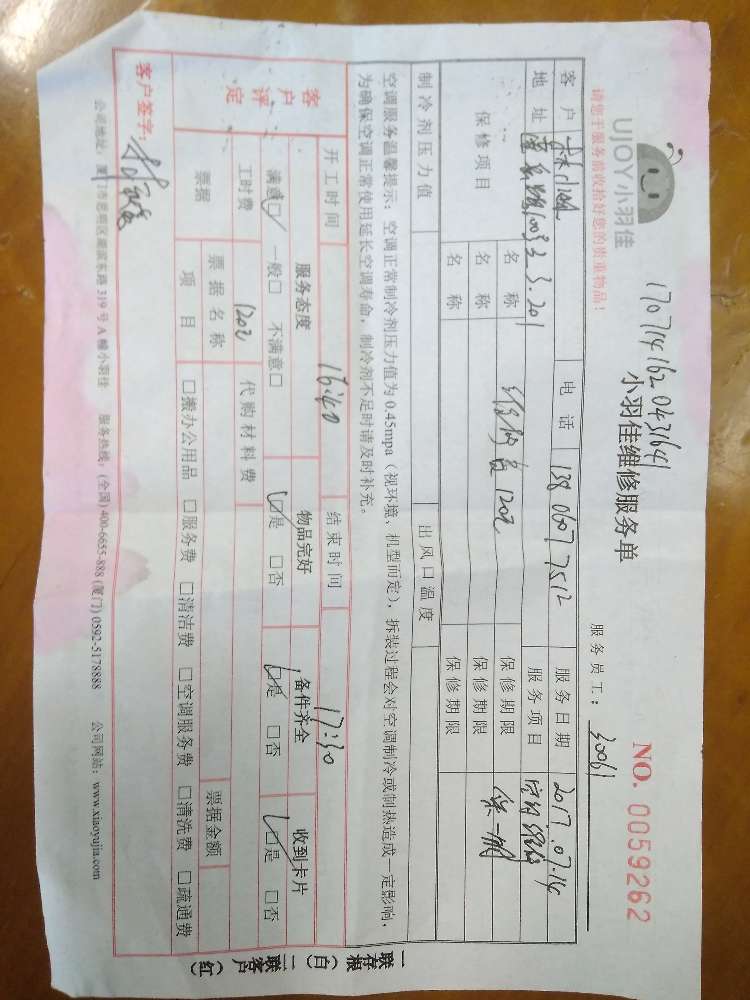 UJOY小羽佳
1707141620431641
小羽佳维修服务单
NO. 0059262
请您于服务前收拾好您的贵重物品！
服务员工：30061
客户 电话 138 0607 7512 服务日期 2017.07.14
地址 3.201 服务项目
保修项目 名称 120元 保修期限
名称 保修期限
名称 保修期限
制冷剂压力值 出风口温度
空调服务温馨提示：空调正常制冷剂压力值为0.45mpa（视环境、机型而定），拆装过程会对空调制冷或制热造成一定影响，
为确保空调正常使用延长空调寿命，制冷剂不足时请及时补充。
开工时间 16:40 结束时间 17:30
客户评定 服务态度 物品完好 备件齐全 收到卡片
满意☑ 一般□ 不满意□ ☑是 □否 ☑是 □否 ☑是 □否
工时费 120元 代购材料费
票据 票据名称 票据金额
项目 □搬办公用品 □服务费 □清洁费 □空调服务费 □清洗费 □疏通费
客户签字：
公司地址：厦门市思明区湖滨东路319号A幢小羽佳 服务热线：(全国)400-6655-888 (厦门)0592-5178888 公司网站：www.xiaoyujia.com
一联存根（白） 二联客户（红）